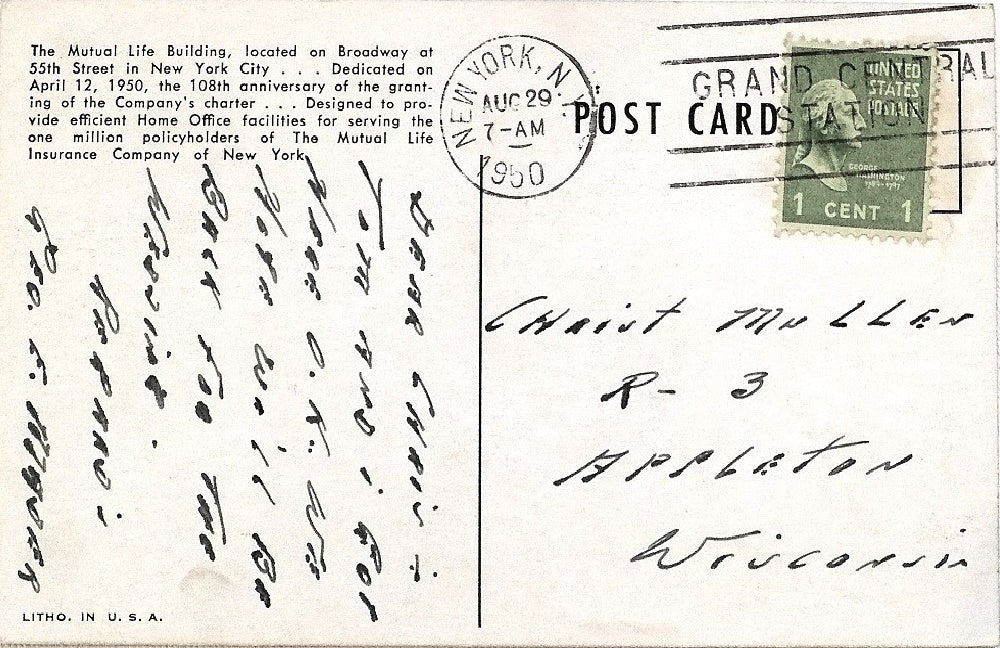 The Mutual Life Building, located on Broadway at
55th Street in New York City . . . Dedicated on
April 12, 1950, the 108th anniversary of the grant-
ing of the Company's charter . . . Designed to pro-
vide efficient Home Office facilities for serving the
one million policyholders of The Mutual Life
Insurance Company of New York.
NEW YORK, N.Y.
AUG 29
7-AM
1950
POST CARD
GRAND CENTRAL
STATION
UNITED
STATES
POSTAGE
GEORGE
WASHINGTON
1789-1797
1 CENT 1
DEAR CHRIST :-
TOM AND I GOT
HERE O.K. WE
HOPE WILL BE
BACK FOR THE
REGARDS :
GEO. F.
CHRIST MULLEN
R- 3
APPLETON
WISCONSIN
LITHO. IN U. S. A.